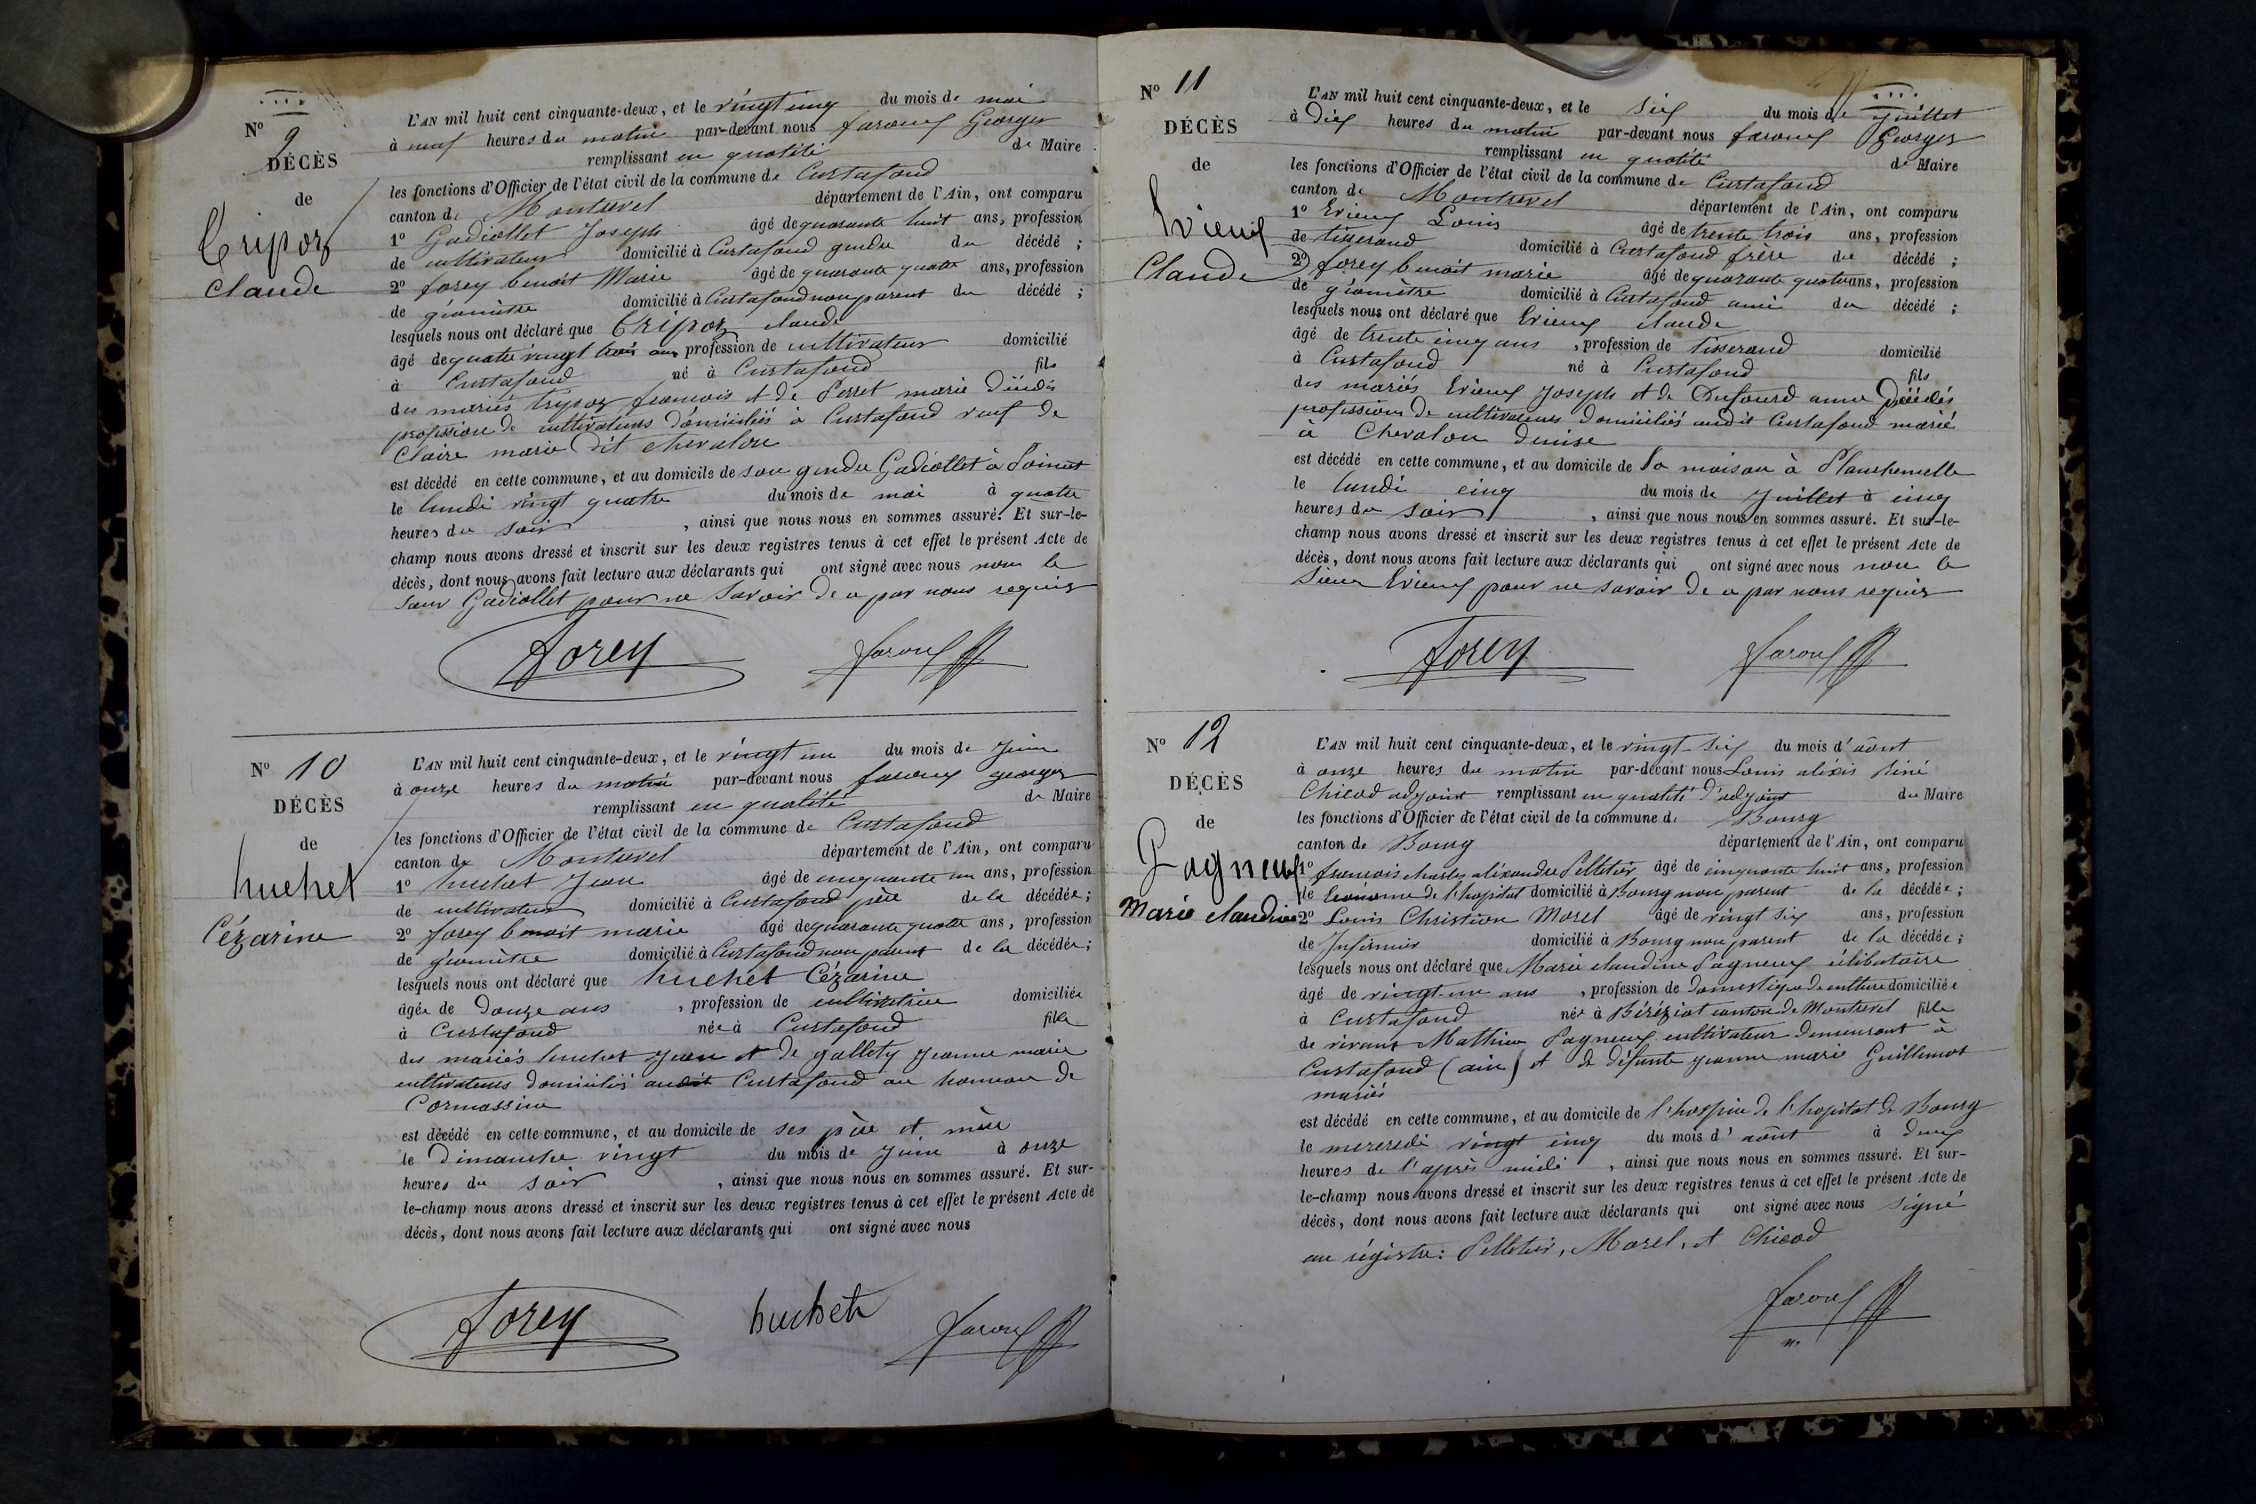 N° 9
DÉCÈS
de
Tripoz
Claude
L'AN mil huit cent cinquante-deux, et le vingt cinq du mois de mai
à neuf heures du matin par-devant nous faroux Georges
remplissant en qualité de Maire
les fonctions d'Officier de l'état civil de la commune de Curtafond
canton de Montrevel département de l'Ain, ont comparu
1° Gadiollet Joseph âgé de quarante huit ans, profession
de cultivateur domicilié à Curtafond gendre du décédé ;
2° forey benoit Marie âgé de quarante quatre ans, profession
de géomètre domicilié à Curtafond non parent du décédé ;
lesquels nous ont déclaré que Tripoz claude
âgé de quatre vingt trois ans profession de cultivateur domicilié
à Curtafond né à Curtafond fils
des mariés tripoz francois et de Perret marie Décédés
profession de cultivateurs domiciliés à Curtafond veuf de
Claire marie dit chevalon
est décédé en cette commune, et au domicile de son gendre Gadiollet à
le lundi vingt quatre du mois de mai à quatre
heures du soir , ainsi que nous nous en sommes assuré. Et sur-le-
champ nous avons dressé et inscrit sur les deux registres tenus à cet effet le présent Acte de
décès, dont nous avons fait lecture aux déclarants qui ont signé avec nous non le
sieur Gadiollet pour ne savoir de ce par nous requis
Forey faroux
N° 10
DÉCÈS
de
huchet
Cézarine
L'AN mil huit cent cinquante-deux, et le vingt un du mois de Juin
à onze heures du matin par-devant nous faroux georges
remplissant en qualité de Maire
les fonctions d'Officier de l'état civil de la commune de Curtafond
canton de Montrevel département de l'Ain, ont comparu
1° huchet Jean âgé de cinquante un ans, profession
de cultivateur domicilié à Curtafond père de la décédée ;
2° forey benoit marie âgé de quarante quatre ans, profession
de géomètre domicilié à Curtafond non parent de la décédée ;
lesquels nous ont déclaré que huchet Cézarine
âgée de Douze ans , profession de cultivatrice domiciliée
à Curtafond née à Curtafond fille
des mariés huchet jean et de gallety jeanne marie
cultivateurs domiciliés audit Curtafond au hameau de
Cormassine
est décédé en cette commune, et au domicile de ses père et mère
le Dimanche vingt du mois de Juin à onze
heures du soir , ainsi que nous nous en sommes assuré. Et sur-
le-champ nous avons dressé et inscrit sur les deux registres tenus à cet effet le présent Acte de
décès, dont nous avons fait lecture aux déclarants qui ont signé avec nous
Forey huchet faroux
N° 11
DÉCÈS
de
Evieux
Claude
L'AN mil huit cent cinquante-deux, et le Six du mois de Juillet
à Dix heures du matin par-devant nous faroux Georges
remplissant en qualité de Maire
les fonctions d'Officier de l'état civil de la commune de Curtafond
canton de Montrevel département de l'Ain, ont comparu
1° Evieux Louis âgé de trente trois ans, profession
de tisserand domicilié à Curtafond frère du décédé ;
2° forey benoit marie âgé de quarante quatre ans, profession
de géomètre domicilié à Curtafond ami du décédé ;
lesquels nous ont déclaré que Evieux claude
âgé de trente cinq ans , profession de tisserand domicilié
à Curtafond né à Curtafond fils
des mariés Evieux Joseph et de Dufourd anne Décédés
profession de cultivateurs Domiciliés audit Curtafond marié
à Chevalon Denise
est décédé en cette commune, et au domicile de Sa maison à
le lundi cinq du mois de Juillet à cinq
heures du soir , ainsi que nous nous en sommes assuré. Et sur-le-
champ nous avons dressé et inscrit sur les deux registres tenus à cet effet le présent Acte de
décès, dont nous avons fait lecture aux déclarants qui ont signé avec nous non le
Sieur Evieux pour ne savoir de ce par nous requis
Forey faroux
N° 12
DÉCÈS
de
Pagneux
Marie claudine
L'AN mil huit cent cinquante-deux, et le vingt-six du mois d'août
à onze heures du matin par-devant nous Louis aléxis Réné
Chicod adjoint remplissant en qualité d'adjoint du Maire
les fonctions d'Officier de l'état civil de la commune de Bourg
canton de Bourg département de l'Ain, ont comparu
1° francois charles aléxandre Pelletier âgé de cinquante huit ans, profession
de Econome de l'hopital domicilié à Bourg non parent de la décédée ;
2° Louis Christian Morel âgé de vingt six ans, profession
de Infirmier domicilié à Bourg non parent de la décédée ;
lesquels nous ont déclaré que Marie claudine Pagneux célibataire
âgé de vingt-un ans , profession de domestique de culture domiciliée
à Curtafond née à Béréziat canton de Montrevel fille
de vivant Mathieu Pagneux cultivateur demeurant à
Curtafond (ain) et de défunte jeanne marie Guillemot
mariés
est décédé en cette commune, et au domicile de l'hospice de l'hopital de Bourg
le mercredi vingt cinq du mois d'août à deux
heures de l'après midi , ainsi que nous nous en sommes assuré. Et sur-
le-champ nous avons dressé et inscrit sur les deux registres tenus à cet effet le présent Acte de
décès, dont nous avons fait lecture aux déclarants qui ont signé avec nous Signé
au régistre : Pelletier, Morel, et Chicod
faroux